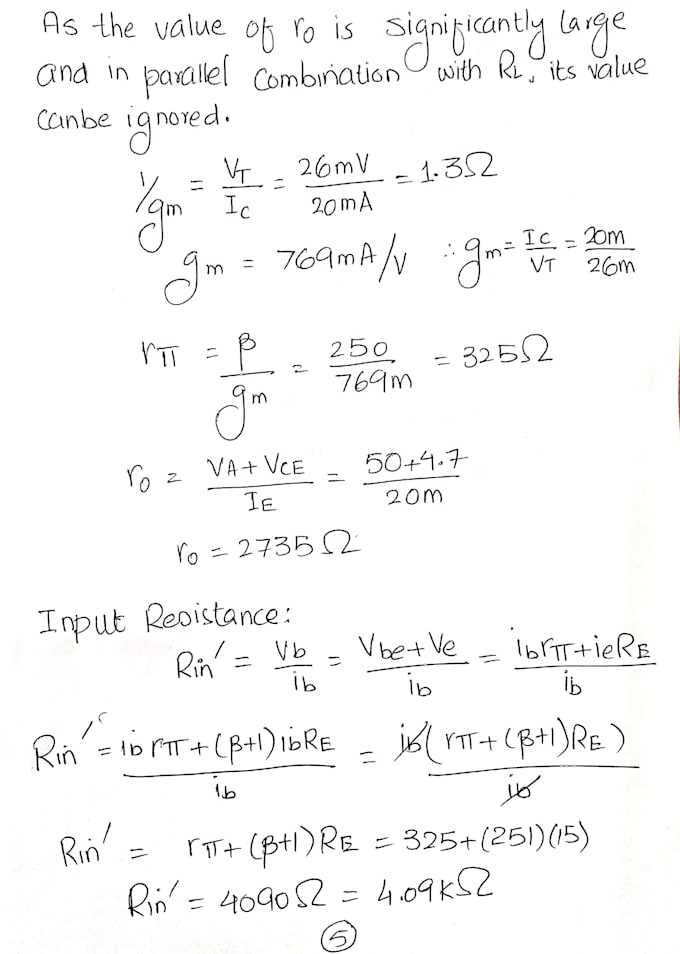 As the value of ro is significantly large
and in parallel combination with RL, its value
canbe ignored.
1/gm = VT/IC = 26mV/20mA = 1.3Ω
gm = 769mA/V ∴ gm = IC/VT = 20m/26m
rπ = β/gm = 250/769m = 325Ω
ro = VA+VCE/IE = 50+4.7/20m
ro = 2735Ω
Input Resistance:
Rin' = Vb/ib = Vbe+Ve/ib = ibrπ+ieRE/ib
Rin' = ibrπ+(β+1)ibRE/ib = ib(rπ+(β+1)RE)/ib
Rin' = rπ+(β+1)RE = 325+(251)(15)
Rin' = 4090Ω = 4.09kΩ
5